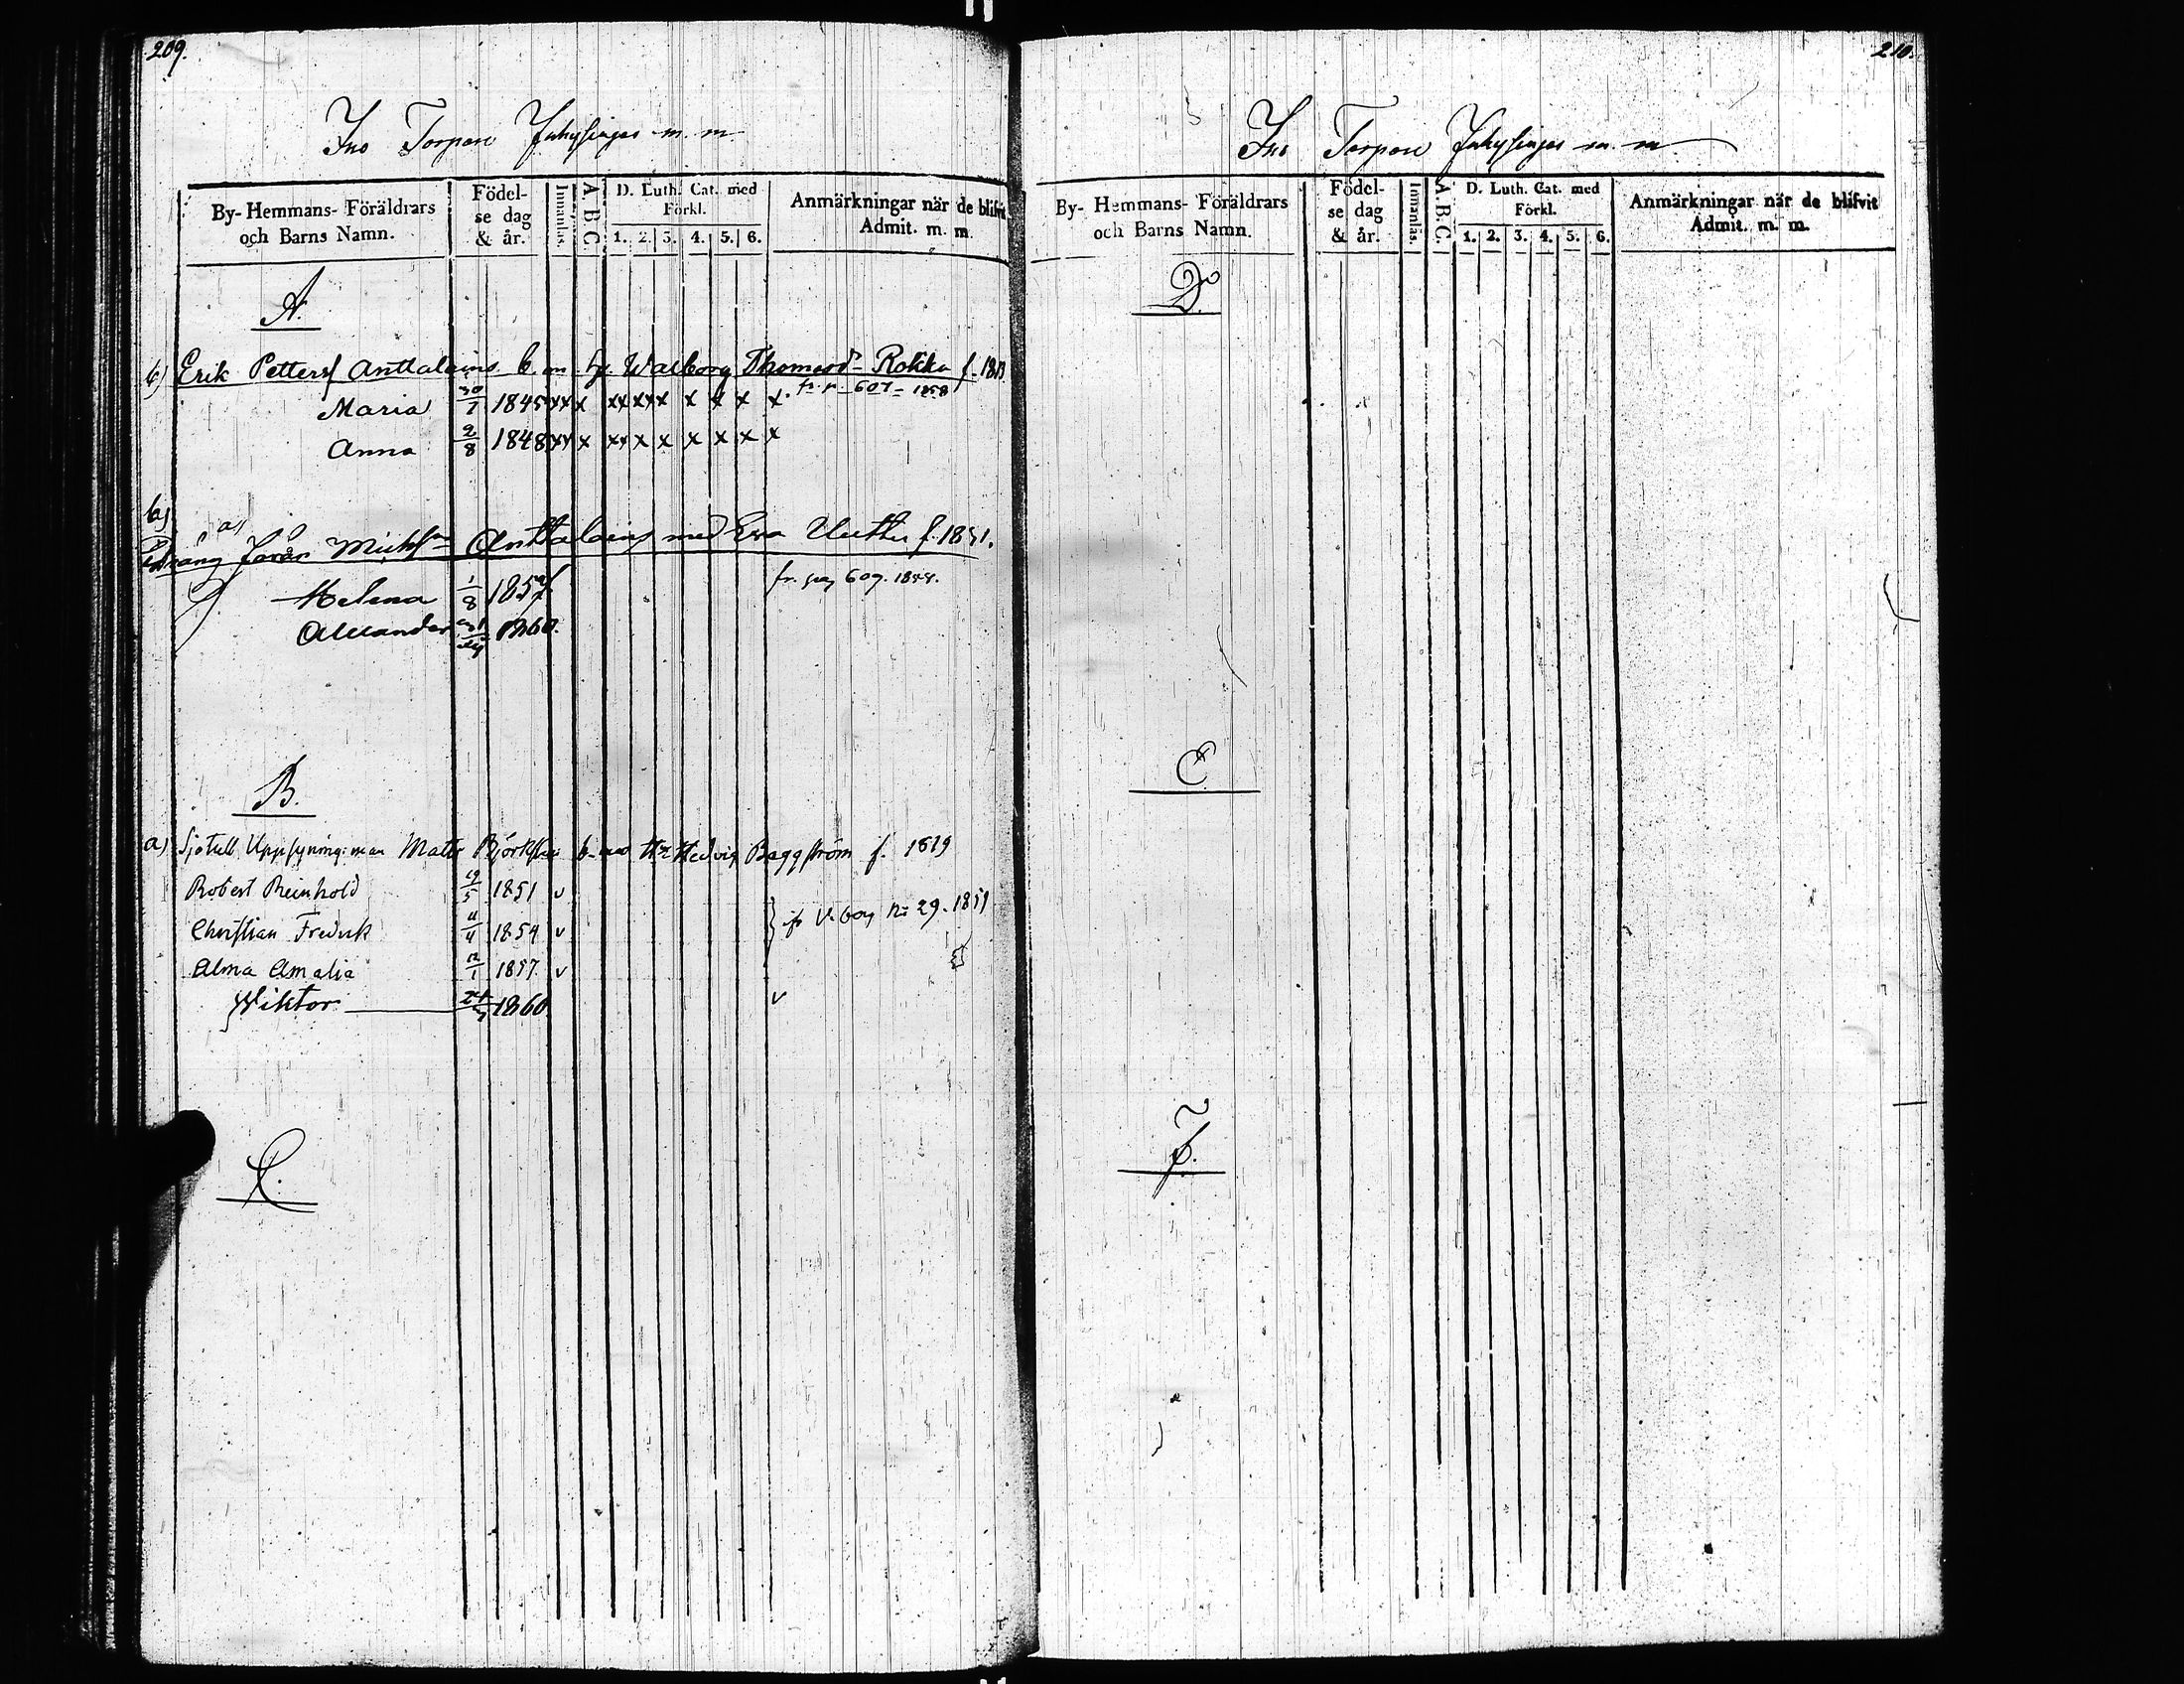 209.
Ino Torpare Inhysingar m. m.
By- Hemmans- Föräldrars och Barns Namn.
Födel-se dag & år.
Innanläs.
A. B. C.
D. Luth. Cat. med Förkl.
1. 2. 3. 4. 5. 6.
Anmärkningar när de blifvit Admit. m. m.
A.
Erik Petters Anttalains b. m. Walborg Thomasd. Rokka f. 1813
fr. p. 607 - 1858
Maria 30/7 1845 xx x xx xx x x x x x
Anna 2/8 1848 xx x xx x x x x x x
a)
Anttalains med Ewa f. 1831.
fr. pag 609. 1858.
Helena 1/8 1857
Alexander 1860.
B.
a) Sjötull Uppsyningsman Matts b. med Hedvig Baggström f. 1819
Robert Reinhold 19/5 1851 v
Christian Fredrik 11/4 1854 v
Alma Amalia 12/1 1857. v
No 29. 1859
Wiktor 1860. v
C.
210.
Ino Torpare Inhysingar m. m
By- Hemmans- Föräldrars och Barns Namn.
Födel-se dag & år.
Innanläs.
A. B. C.
D. Luth. Cat. med Förkl.
1. 2. 3. 4. 5. 6.
Anmärkningar när de blifvit Admit. m. m.
D.
E.
F.